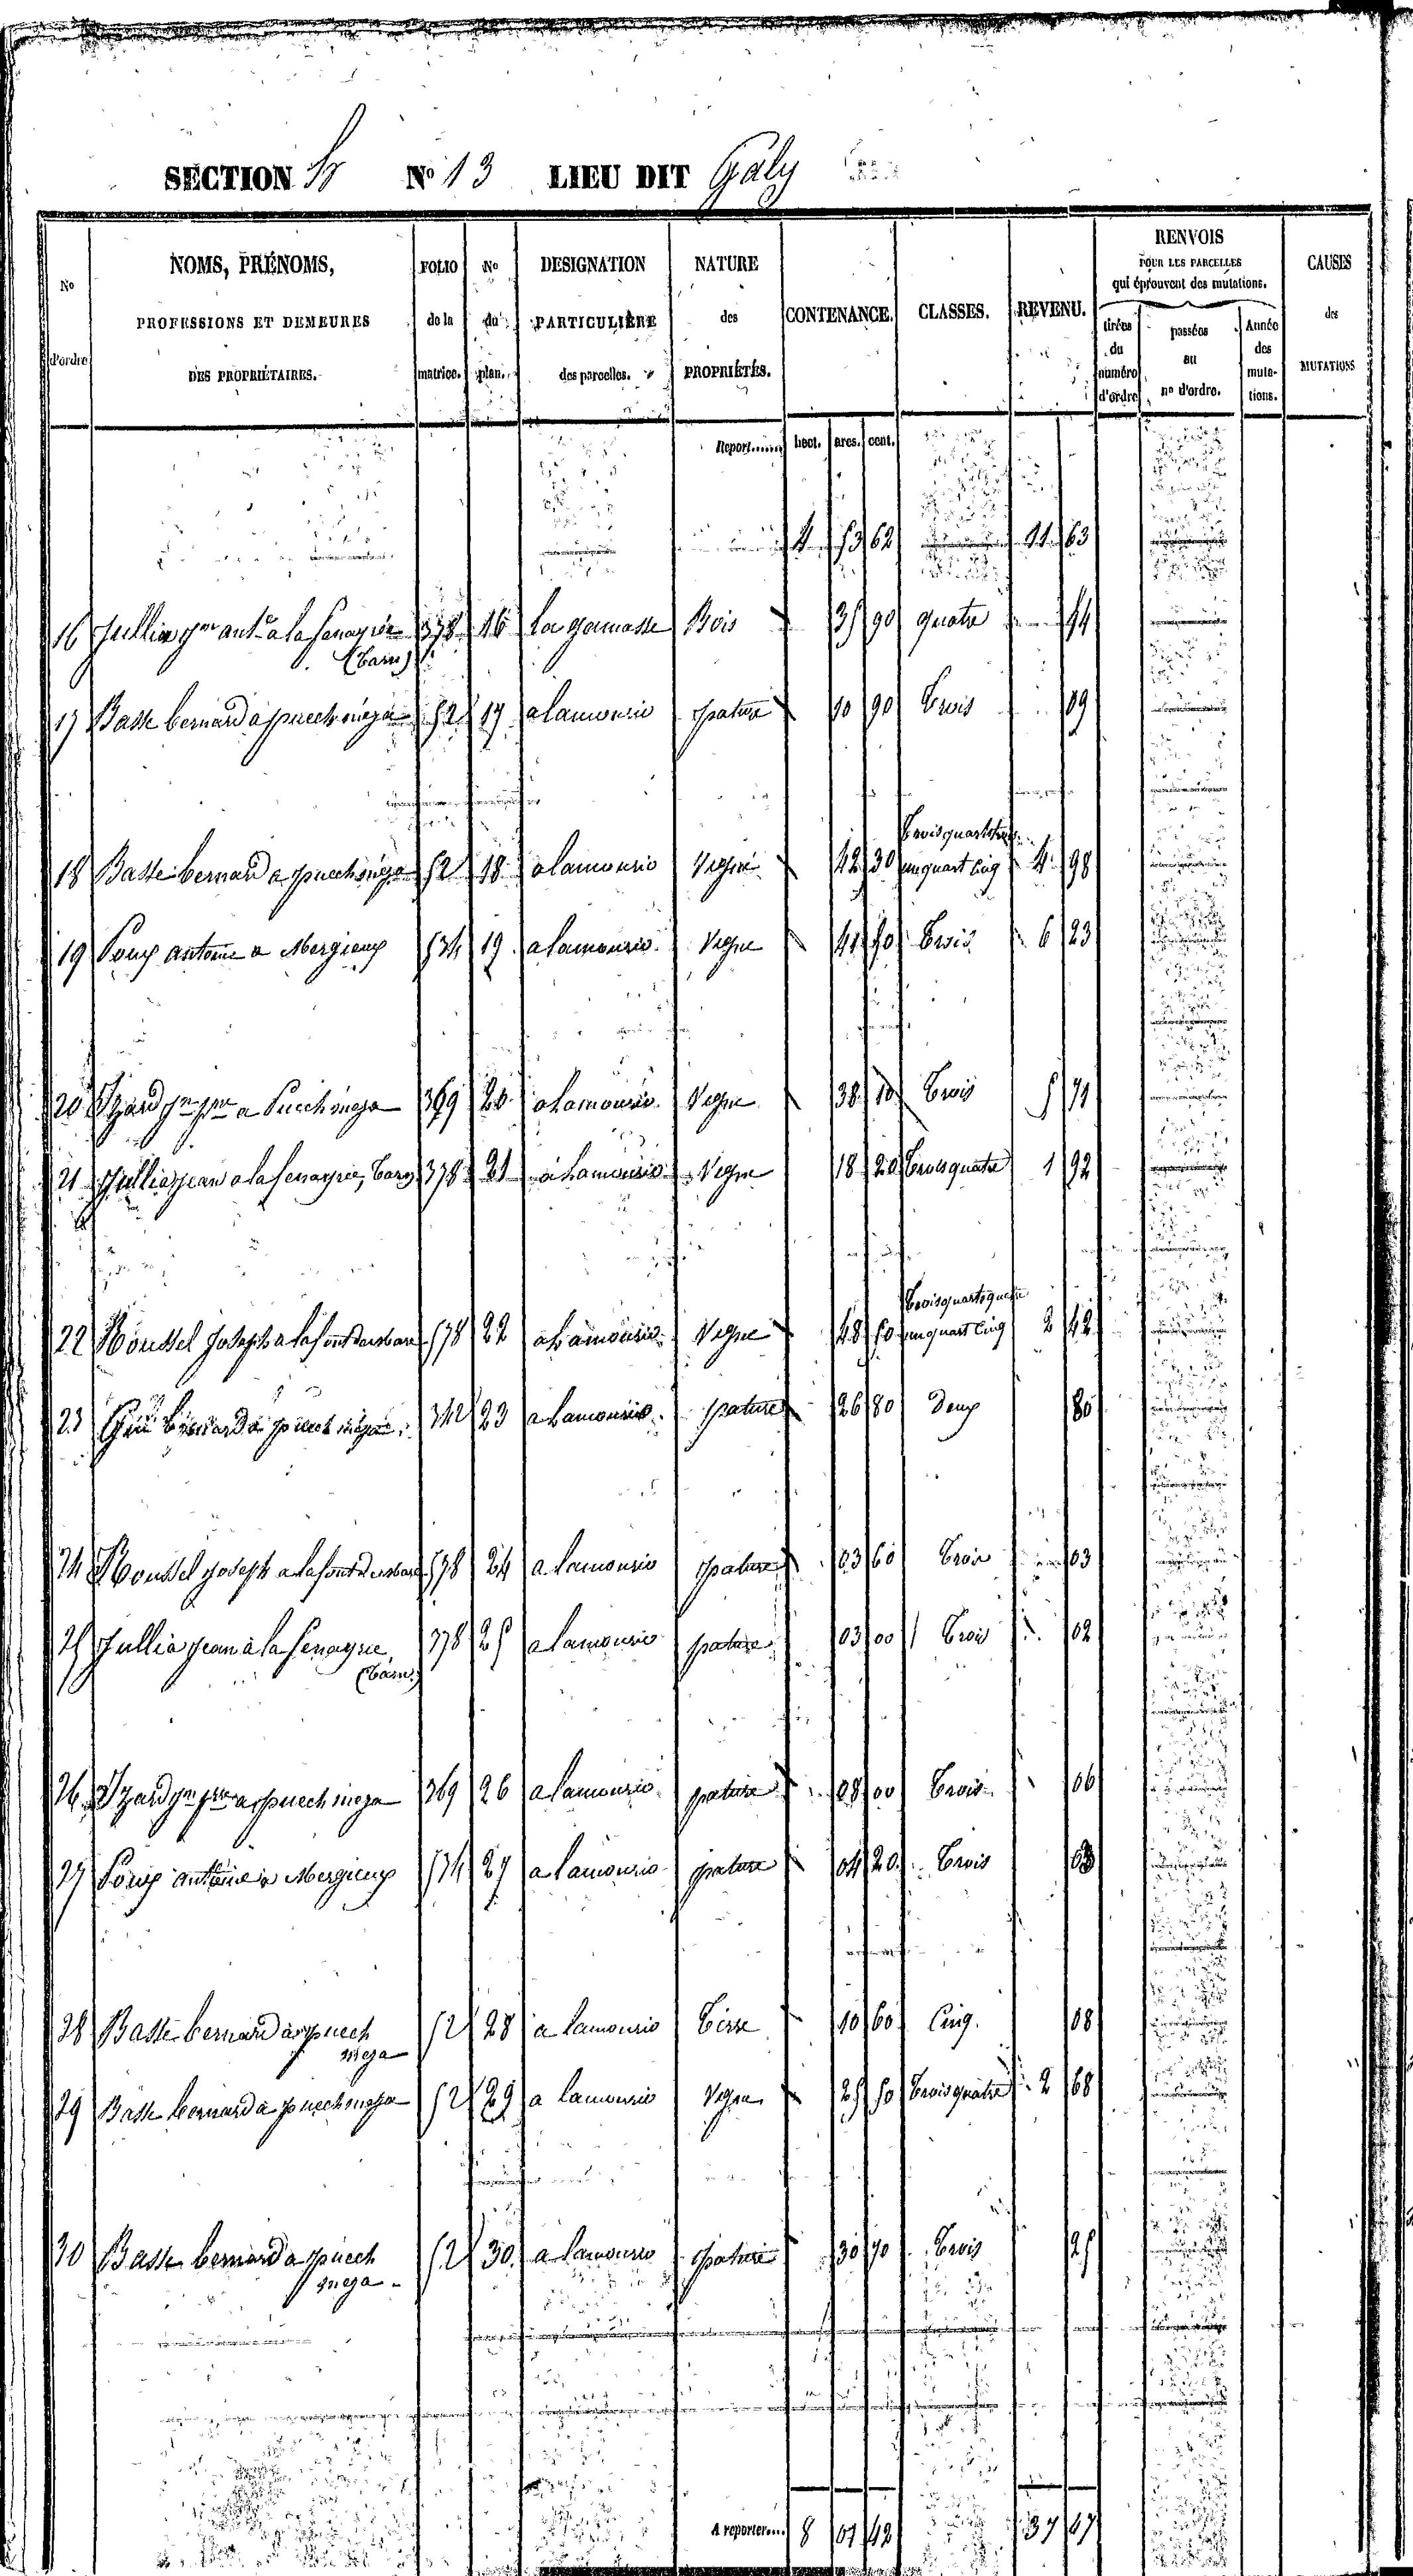 SECTION N° 13 LIEU DIT Galy
No d'ordre
NOMS, PRÉNOMS, PROFESSIONS ET DEMEURES DES PROPRIÉTAIRES.
FOLIO de la matrice.
No du plan.
DESIGNATION PARTICULIÈRE des parcelles.
NATURE des PROPRIÉTÉS.
CONTENANCE.
CLASSES.
REVENU.
RENVOIS POUR LES PARCELLES qui éprouvent des mutations.
tirées du numéro d'ordre
passées au no d'ordre.
Année des mutations.
CAUSES des MUTATIONS
Report...... hect. ares. cent.
4 53 62 11 63
16 Jullia antne a la Senayrie 378 16 La garnasse Bois 35 90 quatre 54
(Tarn)
17 Basse bernard a puech meja 52 17 a lamourio pature 10 90 trois 09
trois quarts trois
18 Basse bernard a puech meja 52 18 a lamourio Vigne 42 30 un quart cinq 4 98
19 Poux antoine a Mergieux 534 19 a lamourio Vigne 41 50 trois 6 23
20 Izard jn pre a Puech meja 369 20 a lamourio Vigne 38 10 trois 5 71
21 Jullia jean a la Senayrie, Tarn 378 21 a lamourio Vigne 18 20 trois quatre 1 92
trois quarts quatre
22 Roussel Joseph a la font 578 22 a lamourio Vigne 48 50 un quart cinq 2 42
23 bernard a puech mejan 342 23 a lamourio pature 26 80 Deux 80
24 Roussel joseph a la font 578 24 a lamourio pature 03 60 trois 03
25 Jullia jean a la Senayrie 378 25 a lamourio pature 03 00 trois 02
(Tarn)
26 Izard jn pre a puech meja 369 26 a lamourio pature 08 00 trois 06
27 Poux antoine a Mergieux 534 27 a lamourio pature 04 20 trois 03
28 Basse bernard a puech 52 28 a lamourio terre 10 60 Cinq. 08
meja
29 Basse bernard a puech meja 52 29 a lamourio Vigne 25 50 trois quatre 2 68
30 Basse bernard a puech 52 30 a lamourio pature 30 70 trois 25
meja
A reporter.... 8 01 42 37 47